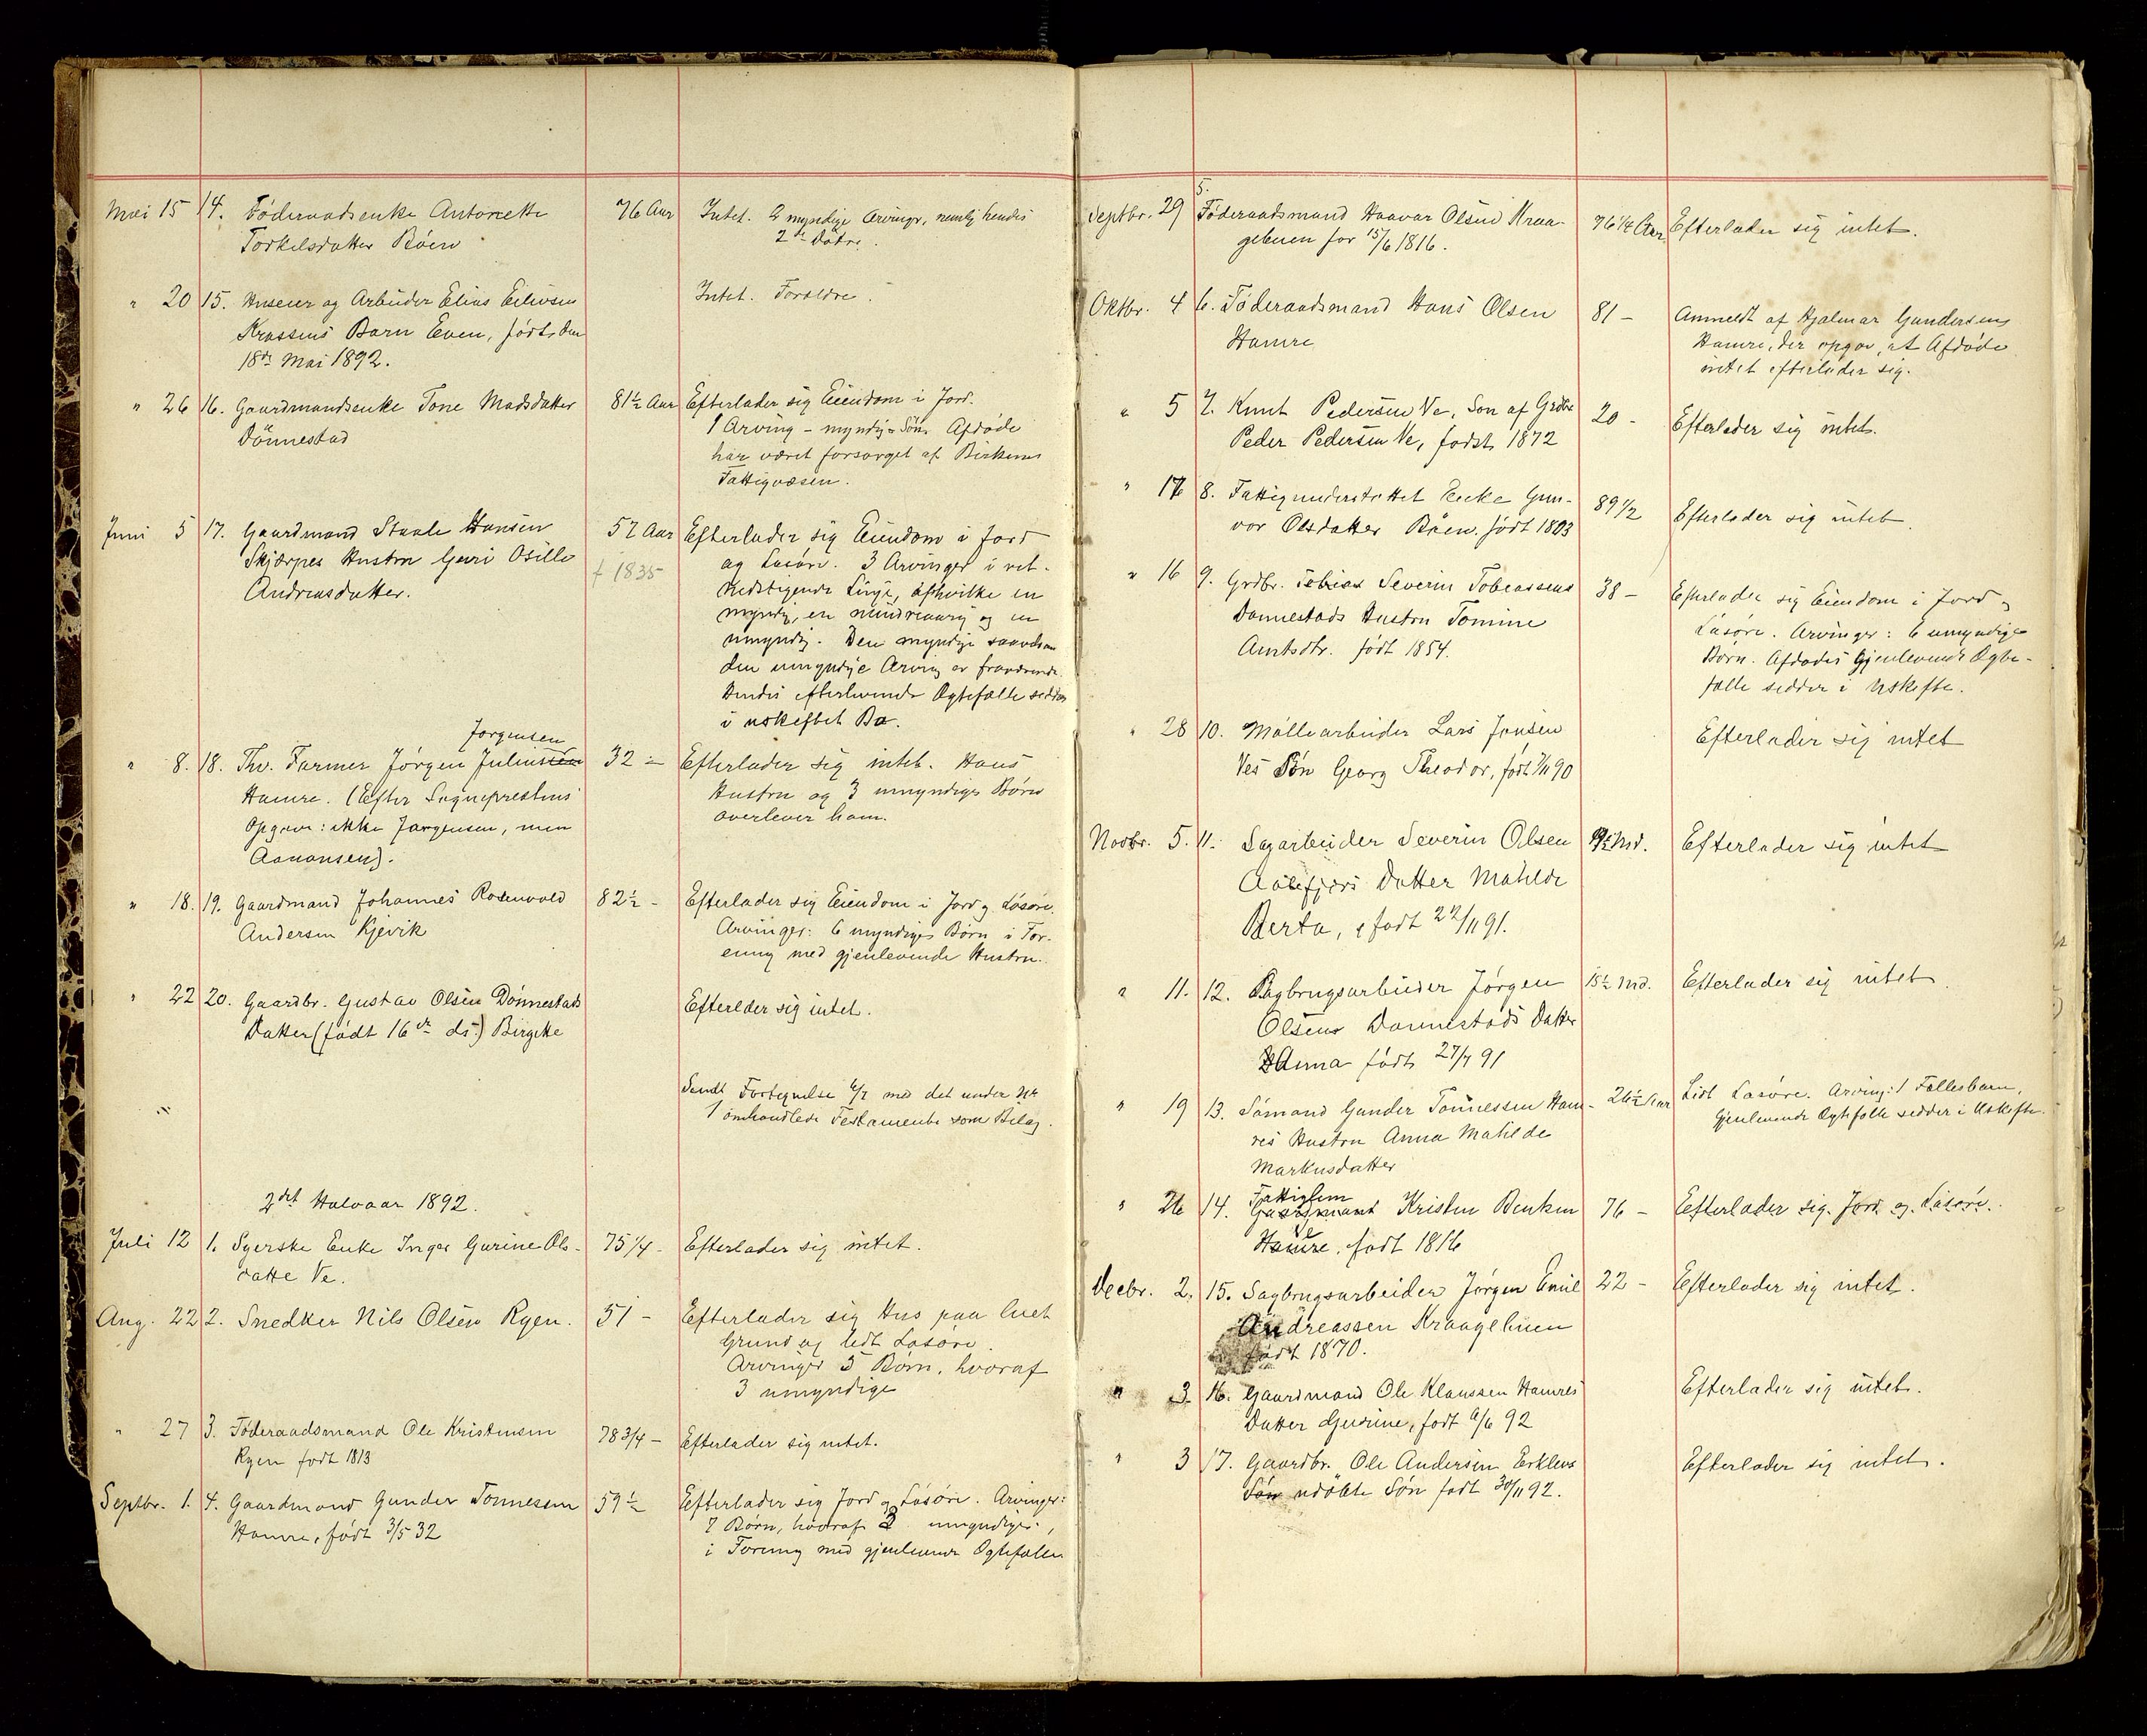 Mai 15 14. Føderaadsenke Antonette 76 Aar Intet. 2 myndige Arvinger, nemlig hendes
Torkelsdatter Bøen 2de Døtre.
" 20 15. Huseier og Arbeider Elias Eilivsen Intet. Forældre.
Krossens Barn Even, født den
18de Mai 1892.
" 26 16. Gaardmandsenke Tone Madsdatter 81½ Aar Efterlader sig Eiendom i Jord.
Dønnestad 1 Arving - myndig Søn. Afdøde
har været forsørget af Birkenes
Fattigvæsen.
Juni 5 17. Gaardmand Staale Hansen 57 Aar Efterlader sig Eiendom i Jord
Skjærpes Hustru Guri Osille f 1835 og Løsøre. 3 Arvinger i ret-
Andreasdatter. nedstigende Linje, afhvilke en
myndig, en mindreaarig og en
umyndig. Den myndige saavelsom
den umyndige Arving er fraværende.
Hendes efterlevende Ægtefælle sidder
i uskiftet Bo.
Jørgensen
" 8. 18. Thv. Farmer Jørgen Juliussen 32 - Efterlader sig intet. Hans
Hamre. (Efter Sogneprestens Hustru og 3 umyndige Børn
Opgave: ikke Jørgensen, men overlever ham.
Aanonsen).
" 18. 19. Gaardmand Johannes Rosenvold 82½ - Efterlader sig Eiendom i Jord og Løsøre.
Andersen Kjevik Arvinger: 6 myndige Børn i For-
ening med gjenlevende Hustru.
" 22 20. Gaardbr. Gustav Olsen Dønnestads Efterlder sig intet.
Datter (født 16de ds.) Birgitte
Sendt Fortegnelse 4/7 med det under No
1 omhandlede Testamente som Bilag.
2det Halvaar 1892.
Juli 12 1. Syerske Enke Inger Gurine Ols- 75 1/4 - Efterlader sig intet.
datte Ve.
Aug. 22 2. Snedker Nils Olsen Ryen. 51 - Efterlader sig Hus paa leiet
Grund og lidt Løsøre.
Arvinger 5 Børn, hvoraf
3 umyndige
" 27 3. Føderaadsmand Ole Kristensen 78 3/4 - Efterlader sig intet.
Ryen født 1813
Septbr. 1. 4. Gaardmand Gunder Tønnessen 59½ Efterlader sig Jord og Løsøre. Arvinger:
Hamre, født 3/5 32 7 Børn, hvoraf 2 umyndige,
i Forening med gjenlevende Ægtefælle
Septbr. 29 5. Føderaadsmand Haavar Olsen Kraa- 76 1/4 Aar Efterlader sig intet.
gebuen for 15/6 1816.
Oktbr. 4 6. Føderaadsmand Hans Olsen 81 - Anmeldt af Hjalmar Gundersen
Hamre Hamre, der opgav, at Afdøde
intet efterlader sig.
" 5 7. Knut Pedersen Ve, Søn af Grdbr 20 - Efterlader sig intet.
Peder Pedersen Ve, født 1872
" 17 8. Fattigunderstøttet Enke Gun- 89 1/2 Efterlader sig intet.
vor Olsdatter Bøen. født 1803
" 16 9. Grdbr. Tobias Severin Tobiassens 38 - Efterlader sig Eiendom i Jord og
Dønnestads Hustru Tomine Løsøre. Arvinger: 6 umyndige
Arntsdtr. født 1854. Børn. Afdødes Gjenlevende Ægte-
fælle sidder i Uskifte.
" 28 10. Møllearbeider Lars Jensen Efterlader sig intet
Ves Søn Georg Theodor, født 7/11 90
Novbr. 5. 11. Sagarbeider Severin Olsen Md. Efterlader sig intet
Aalefjærs Datter Matilde
Berta, født 22/11 91.
" 11. 12. Sagbrugsarbeider Jørgen 15½ Md. Efterlader sig intet
Olsens Dønnestads Datter
Anna født 27/7 91
" 19 13. Sømand Gunder Tønnessen Ham- 26½ Aar Lidt Løsøre. Arving: 1 Fællesbarn,
res Hustru Anna Matilde Gjenlevende Ægtefælle sidder i Uskifte.
Markusdatter
Fattiglem
" 26 14. Gaardmand Kristen Bentsen 76 - Efterlader sig Jord og Løsøre.
Hamre. født 1816
Decbr. 2. 15. Sagbrugsarbeider Jørgen Emil 22 - Efterlader sig intet.
Andreassen Kraagebuen
født 1870.
" 3. 16. Gaardmand Ole Klaussen Hamres Efterlader sig intet.
Datter Gurine, født 6/6 92
" 3 17. Gaardbr. Ole Andersen Erklevs Efterlader sig intet.
Søn udøbte Søn født 30/11 92.